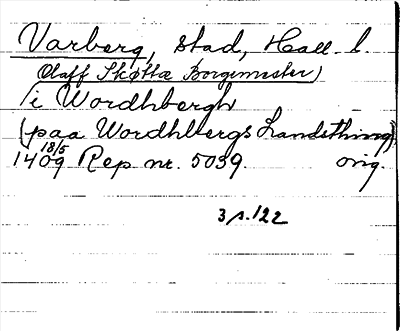 Varberg, stad, Hall. l.
Olaff Skøttæ Borgemester)
i Wordhbergh
(paa Wordhbergs Landsthing)
1409 18/5 Rep nr. 5039. orig.
3 s. 122